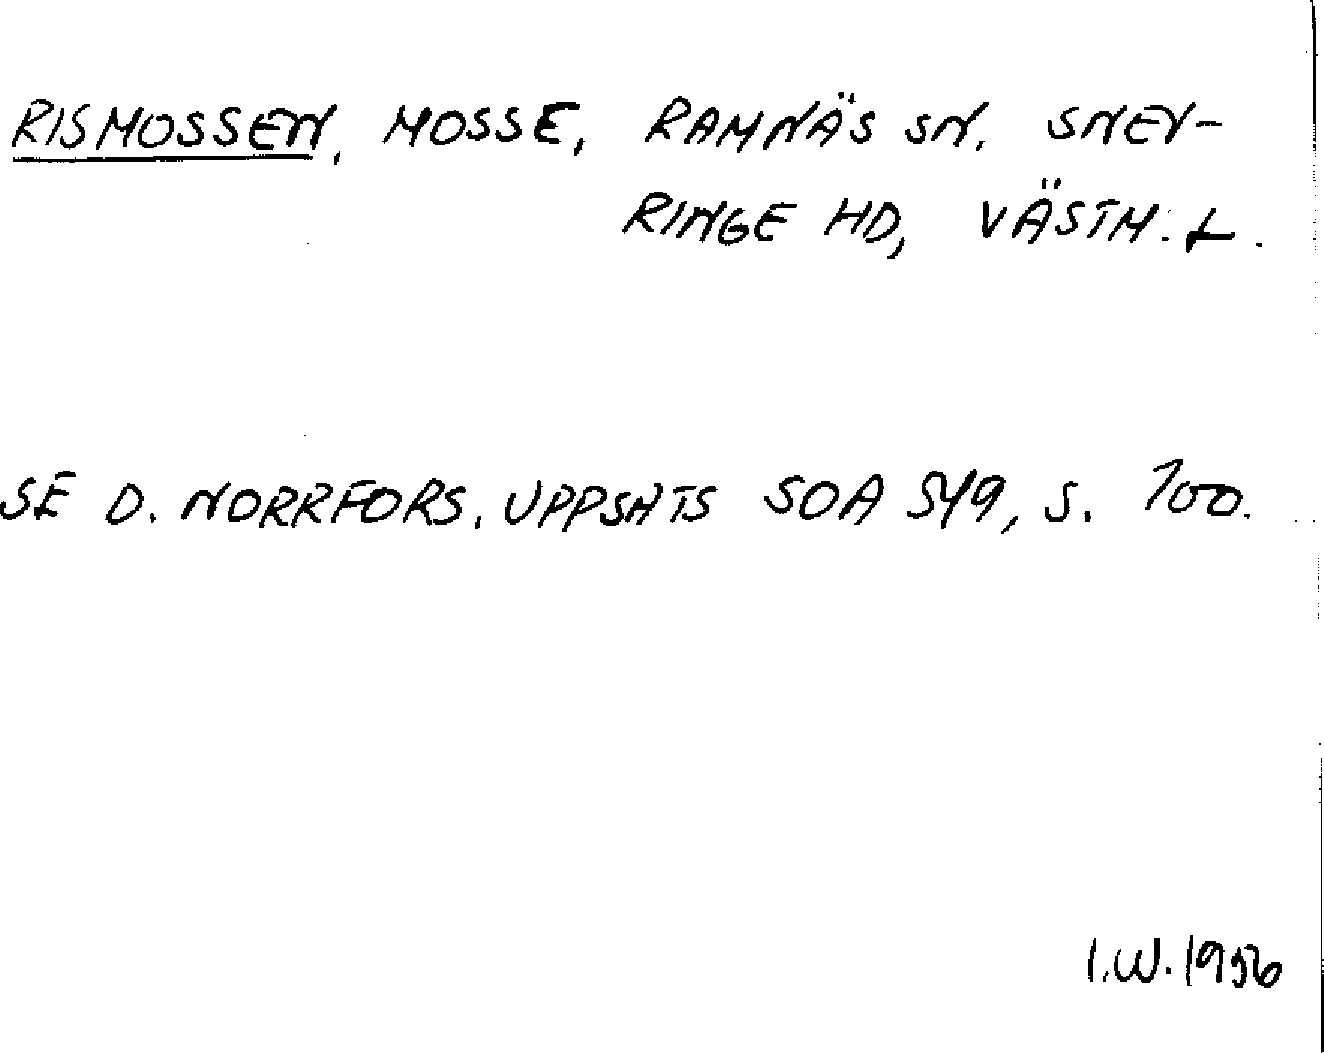 RISMOSSEN, MOSSE, RAMNÄS SN, SNEV-
RINGE HD, VÄSTM. L.
SE D. NORRFORS. UPPSATS SOA 549, S. 100.
I.W. 1956